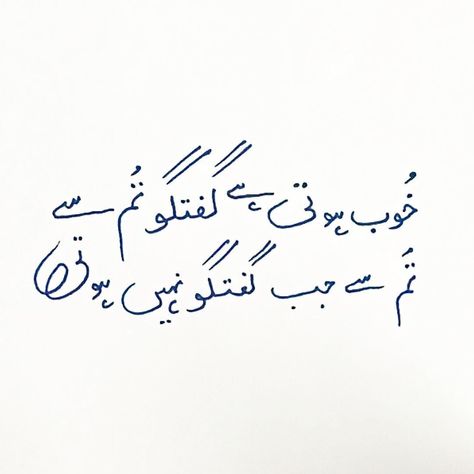 خُوب ہوتی ہے گفتگو تُم سے
تُم سے جب گفتگو نہیں ہوتی